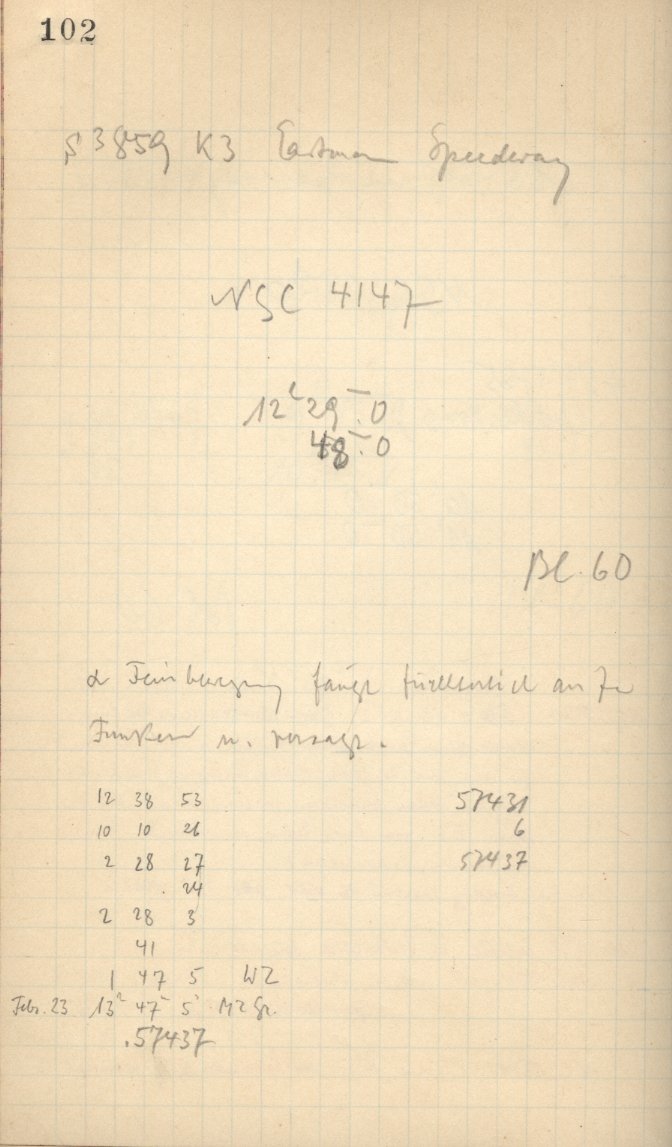 102
S 3859 K3 Eastman Speedway
NGC 4147
12ʰ 29ᵐ.0
48ᵐ.0
Bl. 60
α Feinbewegung fängt fürchterlich an zu
Funken u. versagt.
12 38 53
10 10 26
2 28 27
24
2 28 3
41
1 47 5 WZ
Febr. 23 13ʰ 47ᵐ 5ˢ MZ Gr.
.57437
57431
6
57437